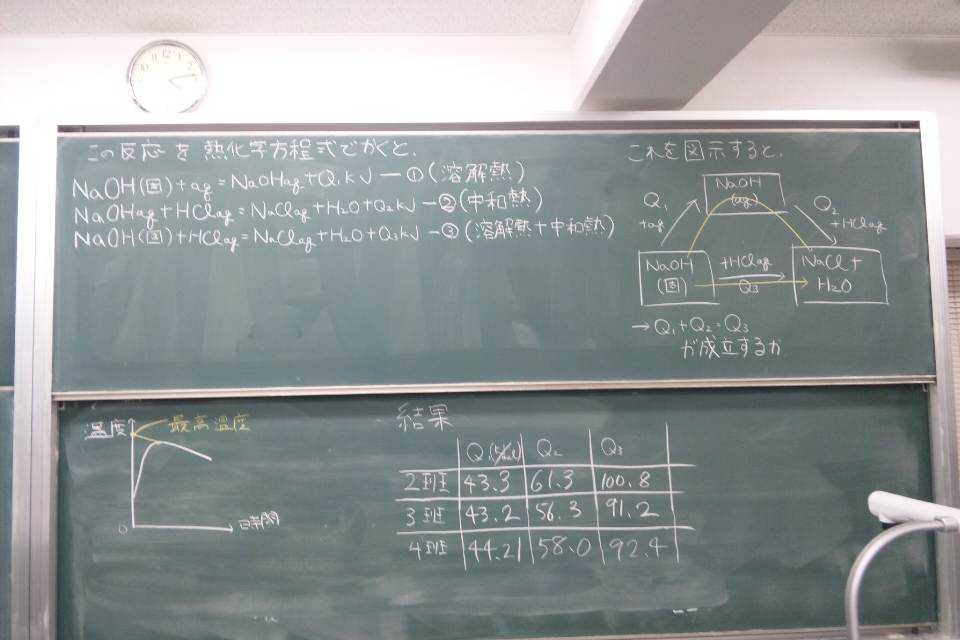 この反応を熱化学方程式でかくと、
NaOH(固)+aq=NaOHaq+Q1kJ—①(溶解熱)
NaOHaq+HClaq=NaClaq+H2O+Q2kJ—②(中和熱)
NaOH(固)+HClaq=NaClaq+H2O+Q3kJ—③(溶解熱+中和熱)
これを図示すると、
NaOH
(aq)
Q1
+aq
Q2
+HClaq
NaOH
(固)
+HClaq
Q3
NaCl+
H2O
→Q1+Q2=Q3
が成立するか
温度
最高温度
0
時間
結果
Q2 Q3
2班 43.3 61.3 100.8
3班 43.2 56.3 91.2
4班 44.21 58.0 92.4